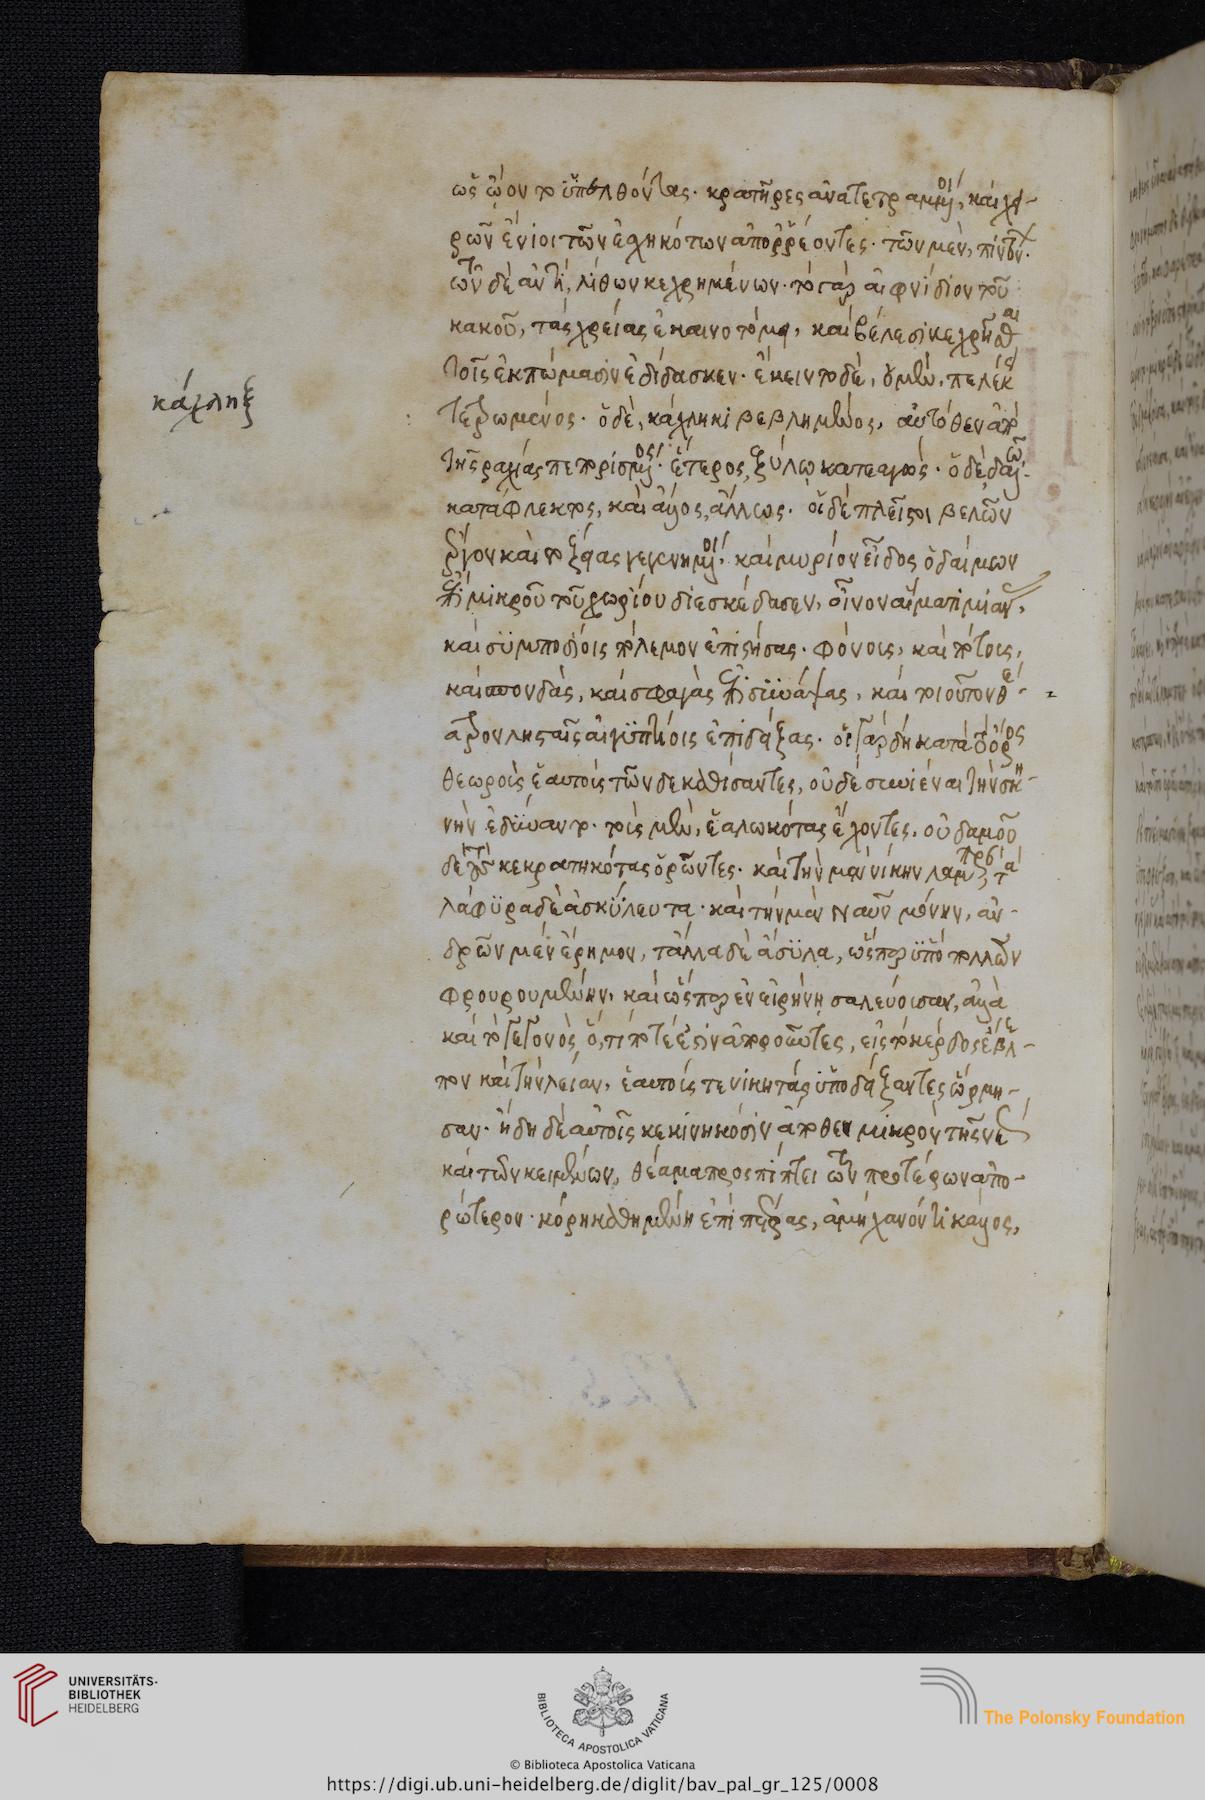 ὡς ᾤοντο ὑπελθόντας· κρατῆρες ἀνατετραμμένοι, καὶ χει-
ρῶν ἔνιοι τῶν ἐσχηκότων ἀπορρέοντες· τῶν μὲν, πινόντων·
τῶν δὲ ἀντὶ, λίθων κεχρημένων· τὸ γὰρ αἰφνίδιον τοῦ
κακοῦ, τὰς χρείας ἐκαινοτόμει, καὶ βέλεσι κεχρῆσθαι
τοῖς ἐκπώμασιν ἐδίδασκεν· ἔκειντο δὲ, ὁ μὲν, πελέκει
τετρωμένος· ὁ δὲ, κάχληκι βεβλημένος, αὐτόθεν ἀπὸ
κάχληξ
τῆς ραχίας πεπορισμένος· ἕτερος, ξύλῳ κατεαγώς· ὁ δὲ δαλῷ
κατάφλεκτος, καὶ ἄλλος, ἄλλως· οἱ δὲ πλεῖστοι βελῶν
ἔργον καὶ τοξείας γεγενημένοι· καὶ μυρίον εἶδος ὁ δαίμων
ἐπὶ μικροῦ τοῦ χωρίου διεσκέδασεν, οἶνον αἵματι μιάνας,
καὶ συμποσίοις πόλεμον ἐπιστήσας· φόνοις, καὶ πότοις,
καὶ σπονδὰς, καὶ σφαγὰς ἐπισυνάψας, καὶ τοιοῦτον θέ-
ατρον λῃσταῖς αἰγυπτίοις ἐπιδείξας· οἱ γὰρ δὴ κατὰ τὸ ὄρος
θεωροὺς ἑαυτοὺς τῶνδε καθίσαντες, οὐδὲ συνιέναι τὴν σκη-
νὴν ἐδύναντο· τοὺς μὲν, ἑαλωκότας ἔχοντες, οὐδαμοῦ
δὲ τοὺς κεκρατηκότας ὁρῶντες· καὶ τὴν μὲν νίκην λαμπρὰν, τὰ
λάφυρα δὲ ἀσκύλευτα· καὶ τὴν μὲν ναῦν μόνην, ἀν-
δρῶν μὲν ἔρημον, τἄλλα δὲ ἄσυλα, ὥσπερ ὑπὸ πολλῶν
φρουρουμένην, καὶ ὥσπερ ἐν εἰρήνῃ σαλεύουσαν, ἀλλὰ
καὶ τὸ γεγονὸς ὅ,τι ποτέ ἐστιν ἀποροῦντες, εἰς τὸ κέρδος ἔβλε-
πον καὶ τὴν λείαν, ἑαυτοὺς τε νικητὰς ὑποδείξαντες ὥρμη-
σαν· ἤδη δὲ αὐτοῖς κεκινηκόσιν ἄποθεν μικρὸν τῆς νεὼς
καὶ τῶν κειμένων, θέαμα προσπίπτει τῶν προτέρων ἀπο-
ρώτερον· κόρη καθημένη ἐπὶ πέτρας, ἀμήχανόν τι κάλλος,
UNIVERSITÄTS-
BIBLIOTHEK
HEIDELBERG
BIBLIOTECA APOSTOLICA VATICANA
The Polonsky Foundation
© Biblioteca Apostolica Vaticana
https://digi.ub.uni-heidelberg.de/diglit/bav_pal_gr_125/0008